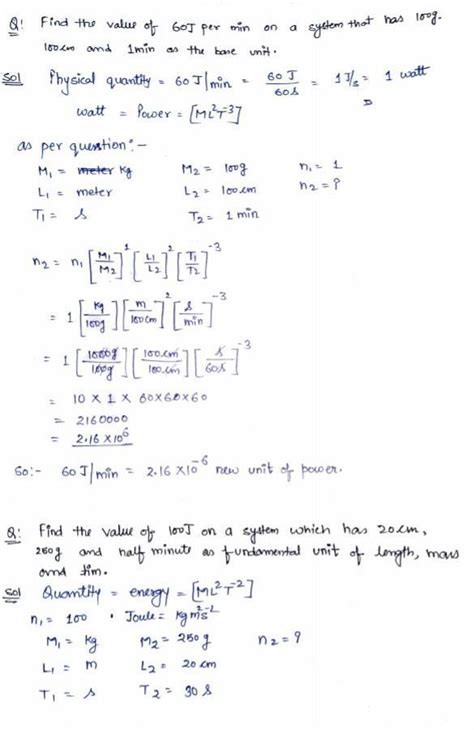 Q: Find the value of 60J per min on a system that has 100g.
100cm and 1min as the base unit.
Sol Physical quantity = 60 J/min = 60 J / 60s = 1 J/s = 1 watt
watt = Power = [ML²T⁻³]
as per question:-
M₁ = meter kg M₂ = 100g n₁ = 1
L₁ = meter L₂ = 100cm n₂ = ?
T₁ = s T₂ = 1 min
n₂ = n₁ [M₁/M₂]¹ [L₁/L₂]² [T₁/T₂]⁻³
= 1 [kg/100g] [m/100cm]² [s/min]⁻³
= 1 [1000g/100g] [100cm/100cm] [s/60s]⁻³
= 10 × 1 × 60×60×60
= 2160000
= 2.16 ×10⁶
So:- 60 J/min = 2.16 ×10⁻⁶ new unit of power.
Q: Find the value of 100J on a system which has 20cm,
250g and half minute as fundamental unit of length, mass
and tim.
Sol Quantity = energy = [ML²T⁻²]
n₁ = 100 • Joule = kgm²s⁻²
M₁ = kg M₂ = 250 g n₂ = ?
L₁ = m L₂ = 20 cm
T₁ = s T₂ = 30 s